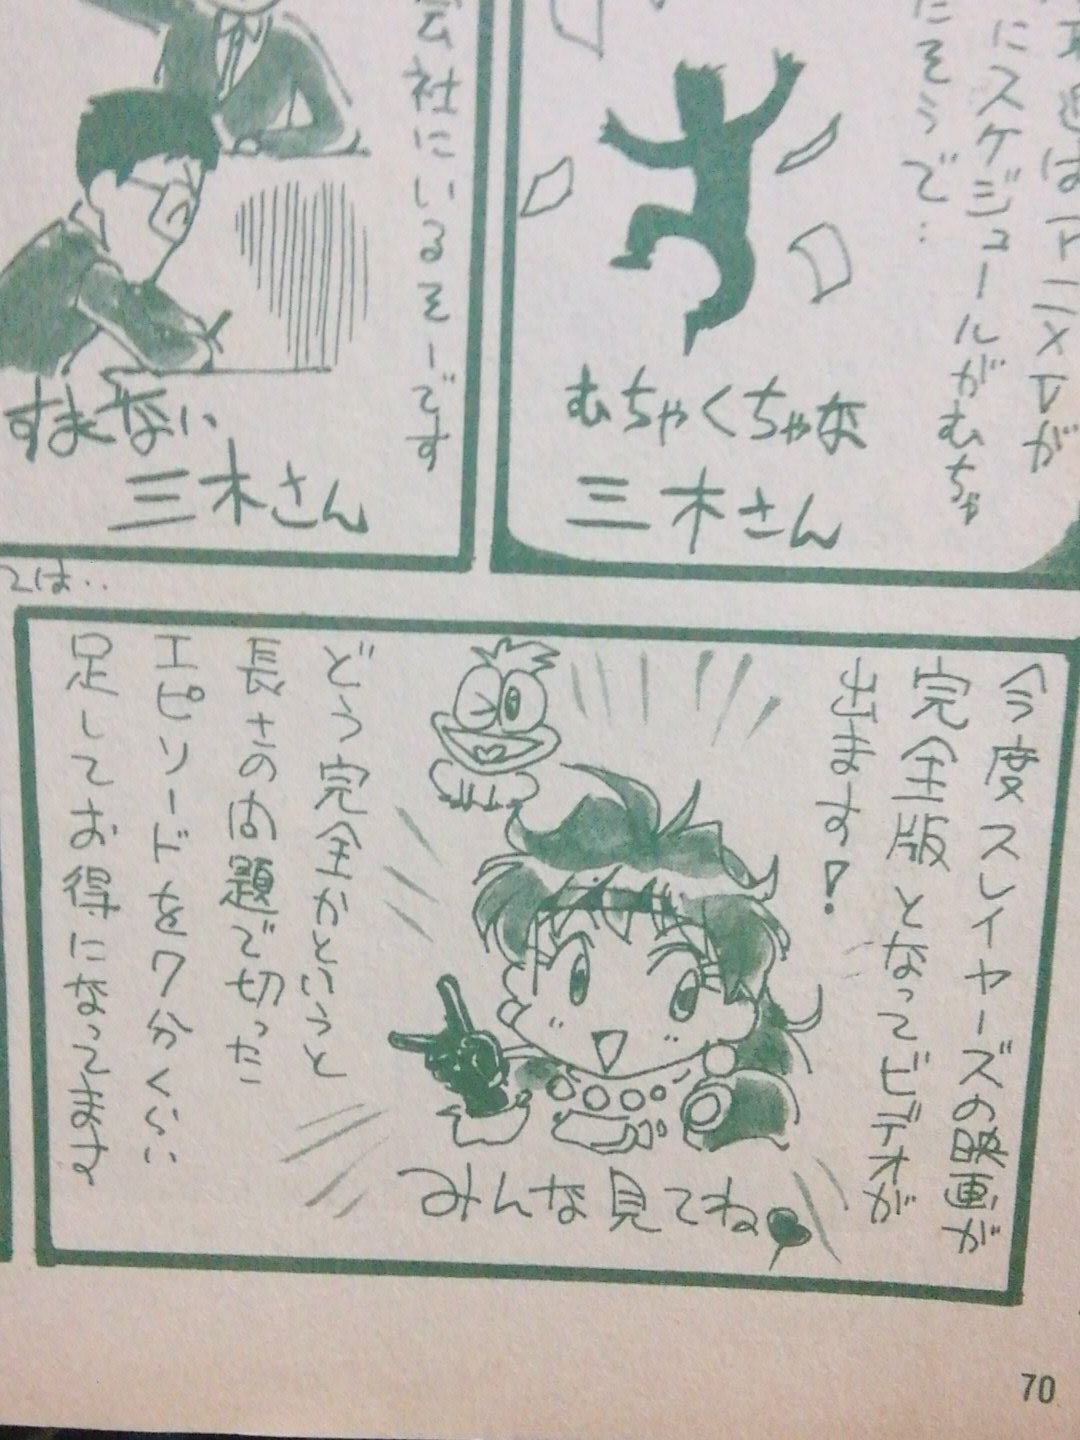 はアニメVが
にスケジュールがむちゃ
たそうで…
むちゃくちゃな
三木さん
会社にいるそーです
すまない
三木さん
では‥
今度スレイヤーズの映画が
完全版となってビデオが
出ます!
どう完全かというと
長さの問題で切った
エピソードを7かくらい
足してお得になってます
みんな見てね
70